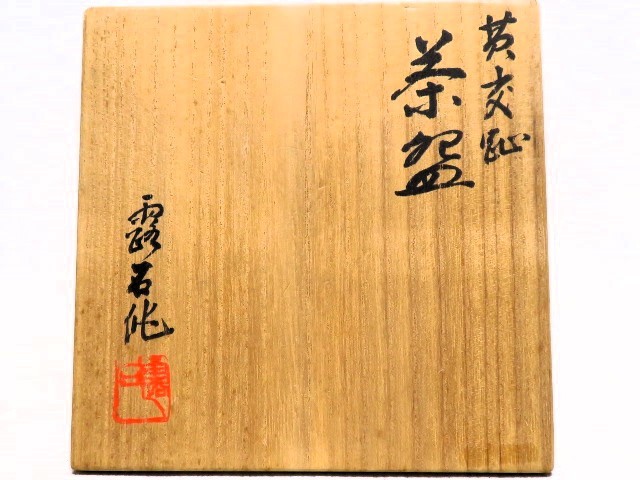 黄交趾
茶盌
露石作